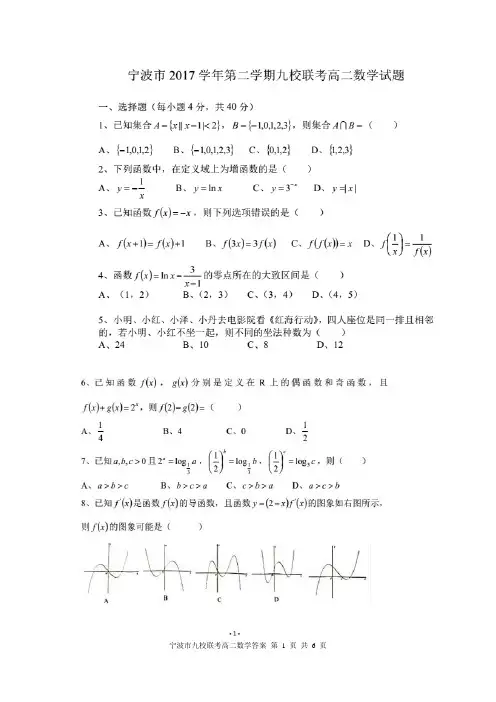 宁波市 2017 学年第二学期九校联考高二数学试题
一、选择题(每小题 4 分，共 40 分)
1、已知集合 A={x||x-1|<2}，B={-1,0,1,2,3}，则集合 A∩B=（ ）
A、{-1,0,1,2} B、{-1,0,1,2,3} C、{0,1,2} D、{1,2,3}
2、下列函数中，在定义域上为增函数的是（ ）
A、y=-1/x B、y=ln x C、y=3^{-x} D、y=|x|
3、已知函数 f(x)=-x，则下列选项错误的是（ ）
A、f(x+1)=f(x)+1 B、f(3x)=3f(x) C、f(f(x))=x D、f(1/x)=1/f(x)
4、函数 f(x)=ln x-3/(x-1) 的零点所在的大致区间是（ ）
A、(1，2) B、(2，3) C、(3，4) D、(4，5)
5、小明、小红、小泽、小丹去电影院看《红海行动》，四人座位是同一排且相邻
的，若小明、小红不坐一起，则不同的坐法种数为（ ）
A、24 B、10 C、8 D、12
6、已知函数 f(x)，g(x) 分别是定义在 R 上的偶函数和奇函数，且
f(x)+g(x)=2^x，则 f(2)-g(2)=（ ）
A、1/4 B、4 C、0 D、1/2
7、已知 a,b,c>0 且
A、a>b>c B、b>c>a C、c>b>a D、a>c>b
8、已知 f′(x) 是函数 f(x) 的导函数，且函数 y=(2-x)f′(x) 的图象如右图所示，
则 f(x) 的图象可能是（ ）
A B C D
·1·
宁波市九校联考高二数学答案 第 1 页 共 6 页